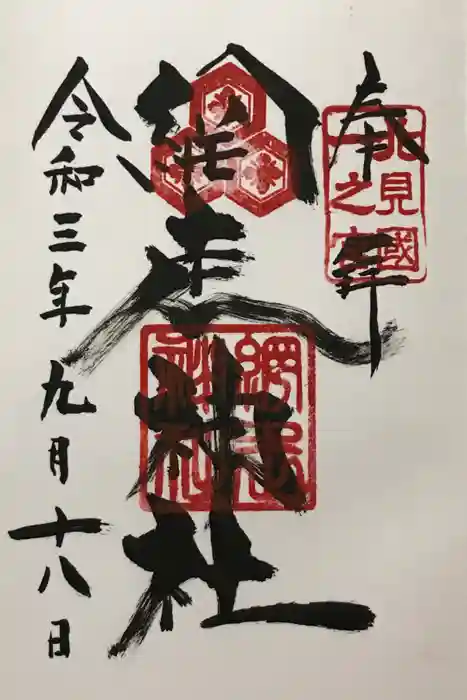 奉拝
北見國
一之宮
網走神社
網走
神社
令和三年九月十八日